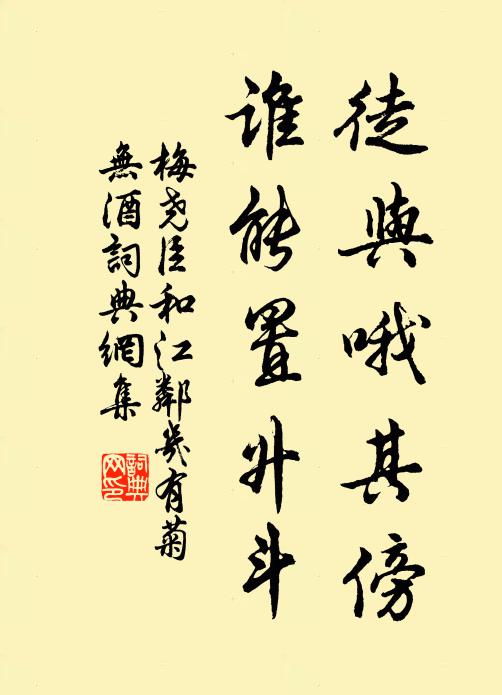 徒與哦其傍
谁能置升斗
梅尧臣和江鄰幾有菊
無酒詞典網集
詞典
网印